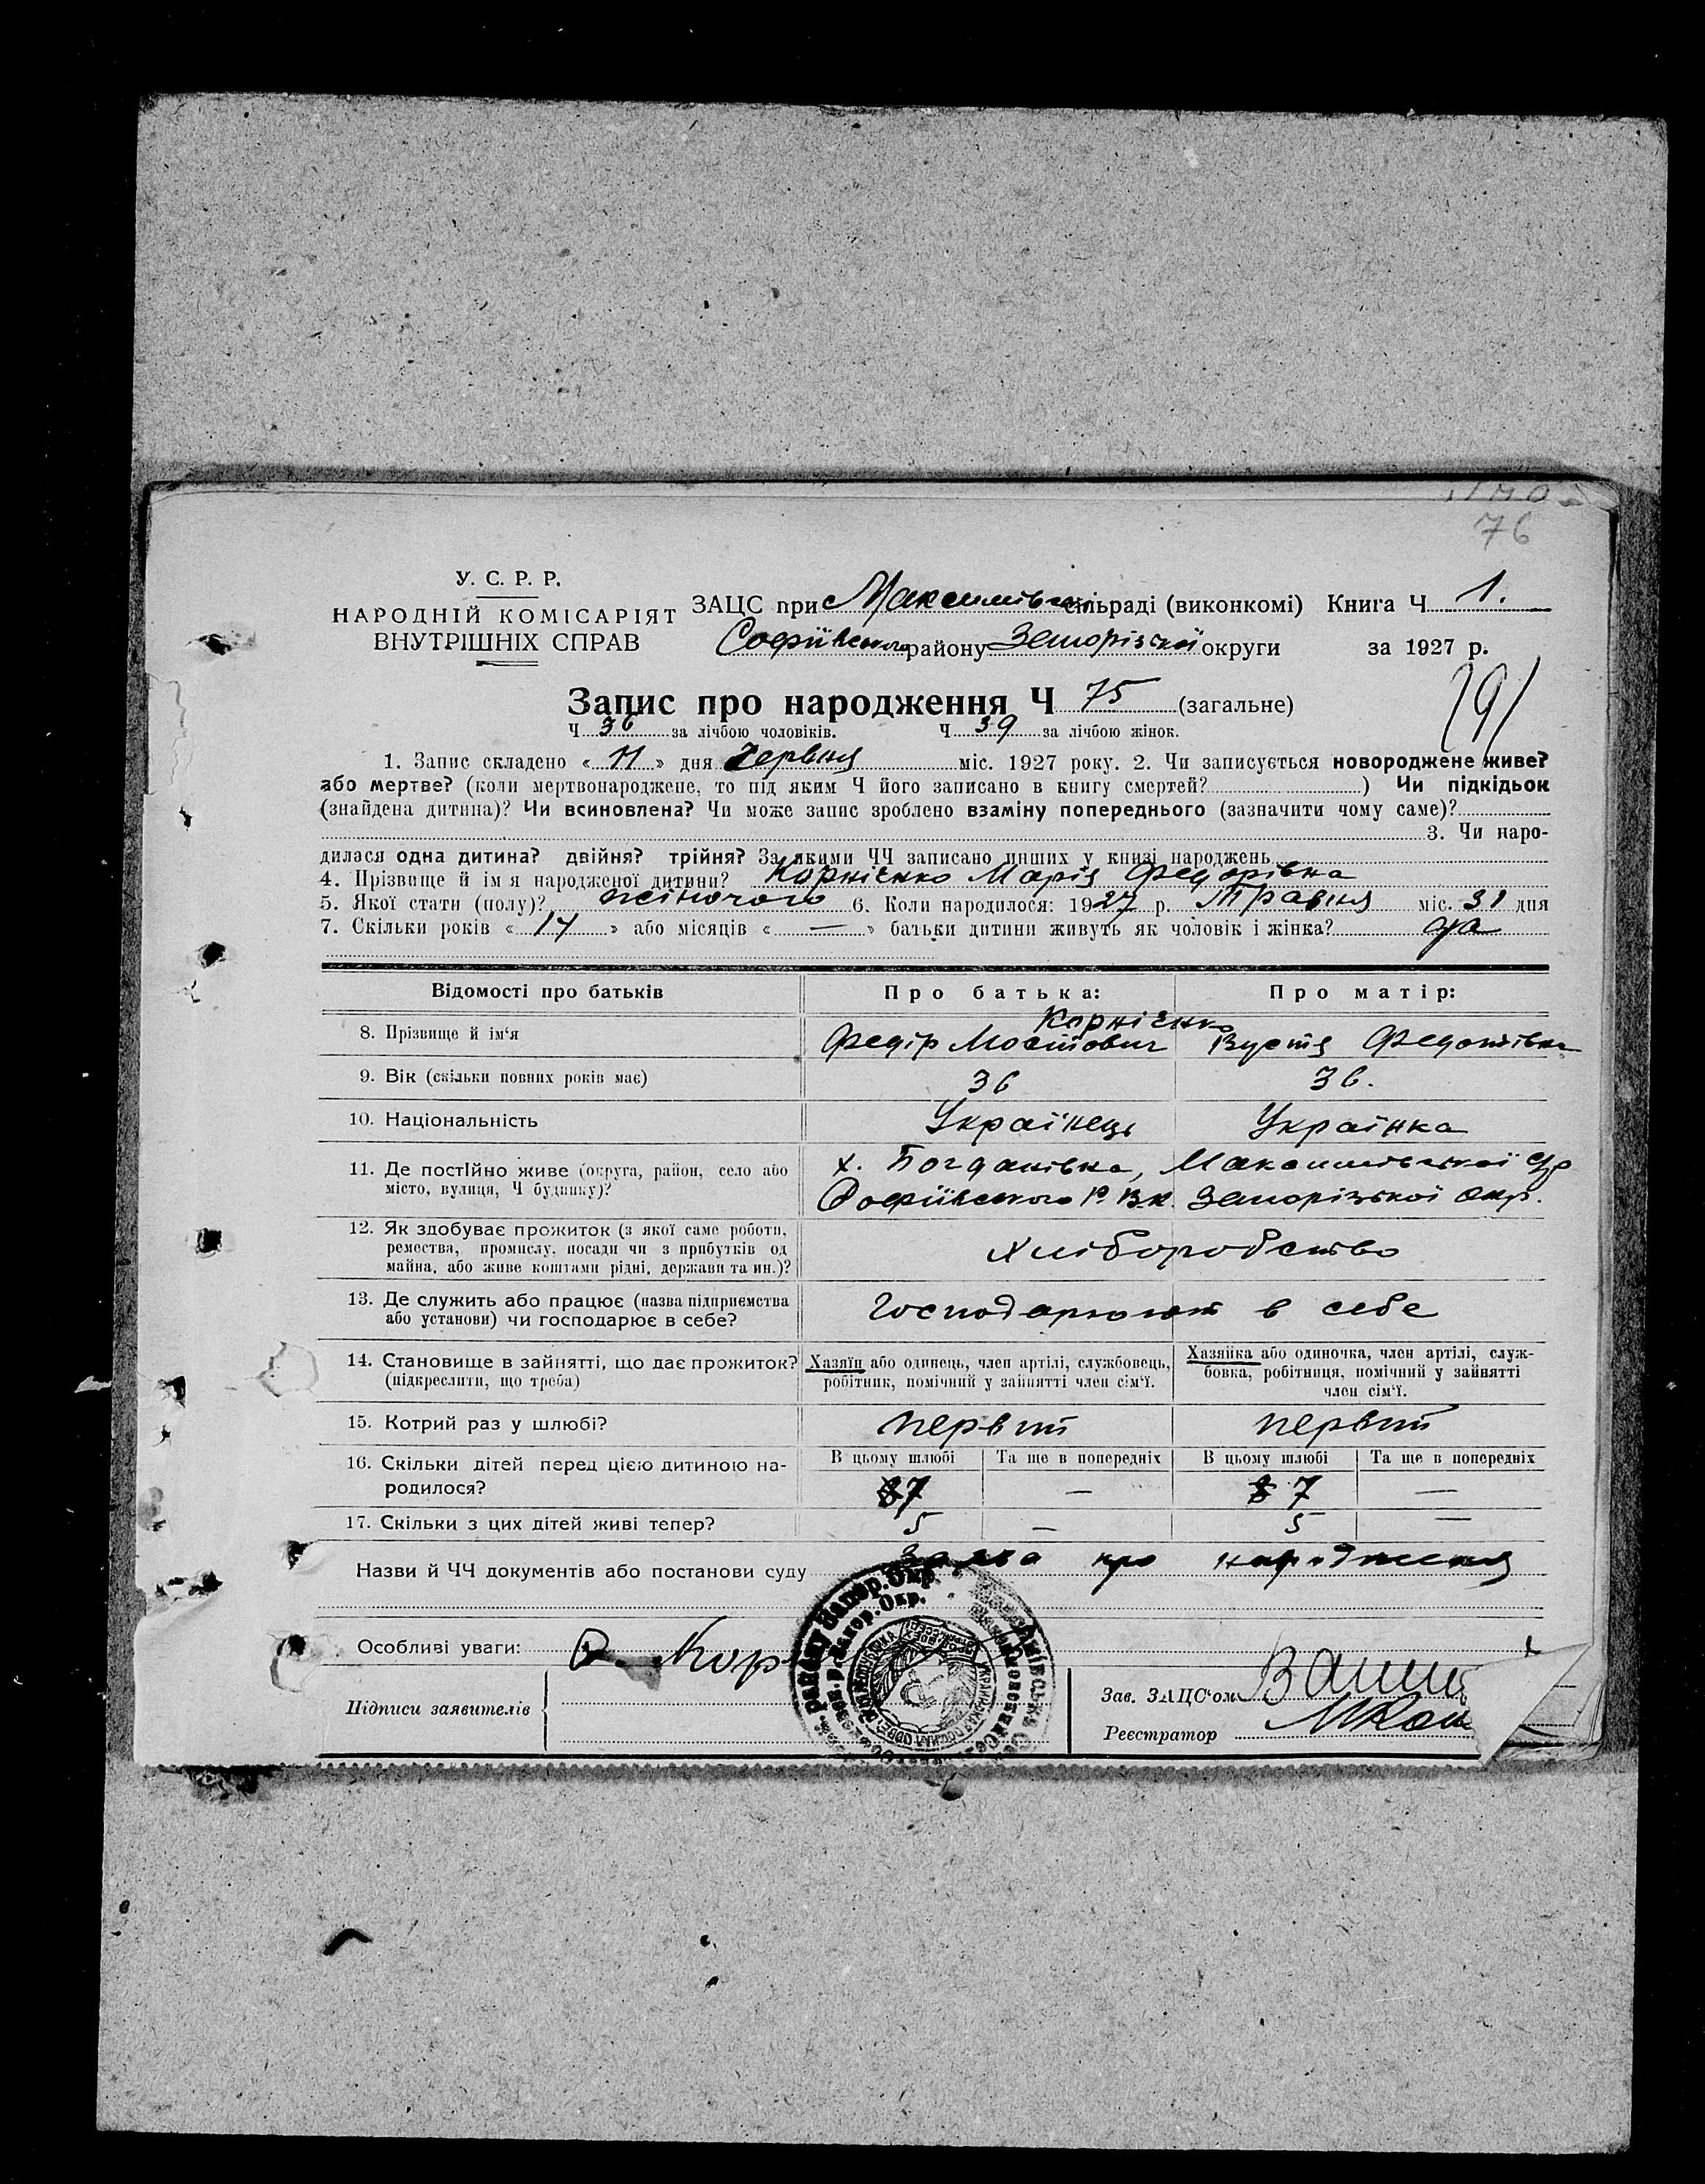 76
У. С. Р. Р.
НАРОДНІЙ КОМІСАРІЯТ
ВНУТРІШНІХ СПРАВ
ЗАЦС при Максимівській сільраді (виконкомі) Книга Ч 1.
Софіївського району Запорізької округи за 1927 р.
191
Запис про народження Ч 75 (загальне)
Ч 36 за лічбою чоловіків. Ч 39 за лічбою жінок.
1. Запис складено « 11 » дня Червня міс. 1927 року. 2. Чи записується новороджене живе?
або мертве? (коли мертвонароджене, то під яким Ч його записано в книгу смертей? ) Чи підкідьок
(знайдена дитина)? Чи всиновлена? Чи може запис зроблено взаміну попереднього (зазначити чому саме)?
3. Чи наро-
дилася одна дитина? двійня? трійня? За якими ЧЧ записано инших у книзі народжень
4. Прізвище й ім я народженої дитини? Корнієнко Марія Федорівна
5. Якої стати (полу)? жіночого 6. Коли народилося: 1927 р. Травня міс. 31 дня
7. Скільки років « 14 » або місяців « — » батьки дитини живуть як чоловік і жінка? да
Відомості про батьків Про батька: Про матір:
Корнієнко
8. Прізвище й ім'я Федір Мостович Вустя Федотівна
9. Вік (скільки повних років має) 36 36.
10. Національність Українець Українка
11. Де постІйно живе (округа, район, село або х. Богданівка, Максимівської с/р
місто, вулиця, Ч будинку)? Софіївського Р.В.к. Запорізької окр.
12. Як здобуває прожиток (з якої саме роботи,
ремества, промислу, посади чи з прибутків од
майна, або живе коштами рідні, держави та ин.)? хліборобство
13. Де служить або працює (назва підприємства
або установи) чи господарює в себе? Господарюют в себе
14. Становище в зайнятті, що дає прожиток? Хазяїн або одинець, член артілі, службовець, Хазяйка або одиночка, член артілі, служ-
(підкреслити, що треба) робітник, помічний у зайнятті член сім'ї. бовка, робітниця, помічний у зайнятті
член сім'ї.
15. Котрий раз у шлюбі? первий первий
16. Скільки дітей перед цією дитиною на- В цьому шлюбі Та ще в попередніх В цьому шлюбі Та ще в попередніх
родилося? 7 — 7 —
17. Скільки з цих дітей живі тепер? 5 — 5 —
Назви й ЧЧ документів або постанови суду Заява про народження
Особливі уваги:
Підписи заявителів
Зав. ЗАЦС'ом
Реєстратор